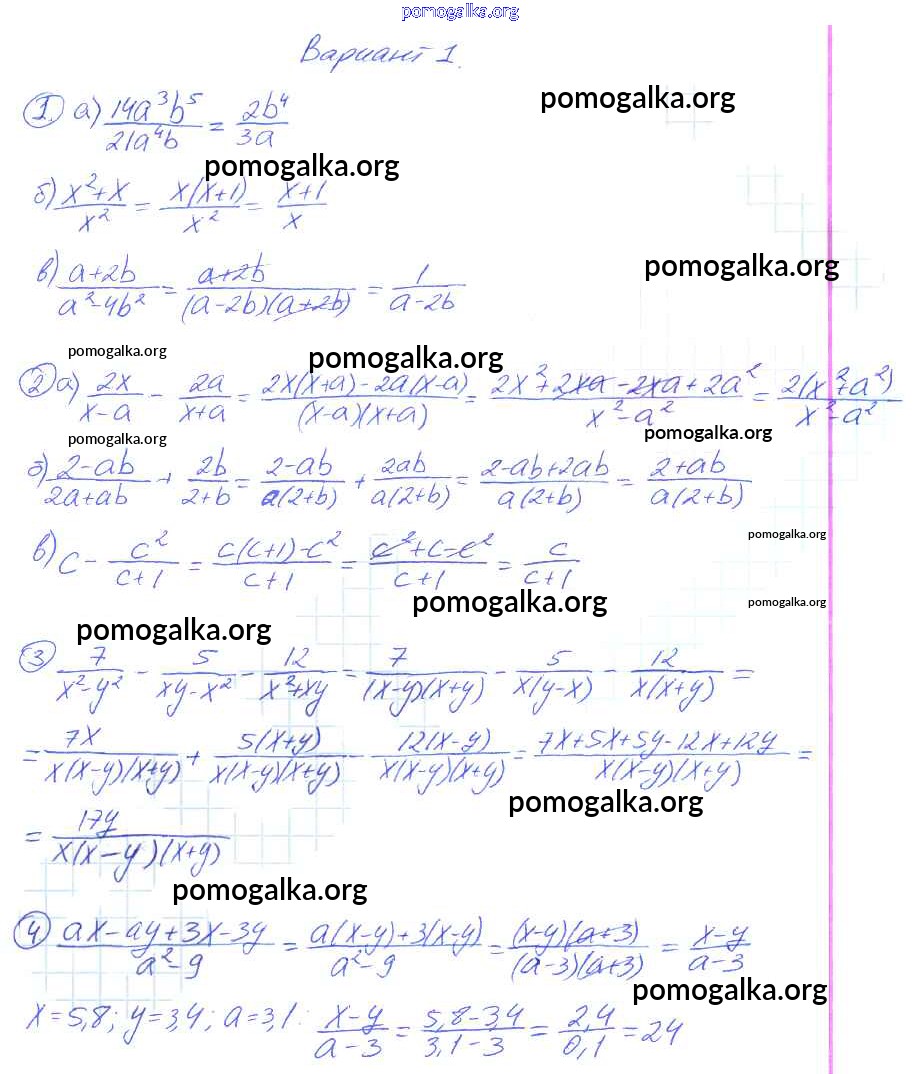 pomogalka.org
Вариант 1.
pomogalka.org
1. а) 14a³b⁵/21a⁴b = 2b⁴/3a
pomogalka.org
б) x²+x/x² = x(x+1)/x² = x+1/x
pomogalka.org
в) a+2b/a²-4b² = a+2b/(a-2b)(a+2b) = 1/a-2b
pomogalka.org
pomogalka.org
2 а) 2x/x-a - 2a/x+a = 2x(x+a)-2a(x-a)/(x-a)(x+a) = 2x²+2xa-2xa+2a²/x²-a² = 2(x²+a²)/x²-a²
pomogalka.org
pomogalka.org
б) 2-ab/2a+ab + 2b/2+b = 2-ab/a(2+b) + 2ab/a(2+b) = 2-ab+2ab/a(2+b) = 2+ab/a(2+b)
pomogalka.org
в) c - c²/c+1 = c(c+1)-c²/c+1 = c²+c-c²/c+1 = c/c+1
pomogalka.org
pomogalka.org
pomogalka.org
3 7/x²-y² - 5/xy-x² - 12/x²+xy = 7/(x-y)(x+y) - 5/x(y-x) - 12/x(x+y) =
= 7x/x(x-y)(x+y) + 5(x+y)/x(x-y)(x+y) - 12(x-y)/x(x-y)(x+y) = 7x+5x+5y-12x+12y/x(x-y)(x+y) =
pomogalka.org
= 17y/x(x-y)(x+y)
pomogalka.org
4 ax-ay+3x-3y/a²-9 = a(x-y)+3(x-y)/a²-9 = (x-y)(a+3)/(a-3)(a+3) = x-y/a-3
pomogalka.org
x=5,8; y=3,4; a=3,1: x-y/a-3 = 5,8-3,4/3,1-3 = 2,4/0,1 = 24